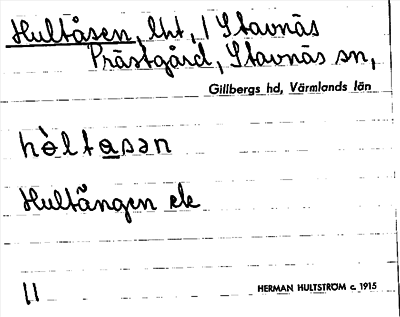 Hultåsen, lht, / Stavnäs
Prästgård, Stavnäs sn,
Gillbergs hd, Värmlands län
hɵ̀ltasən
Hultängen ek
11
HERMAN HULTSTRÖM c. 1915